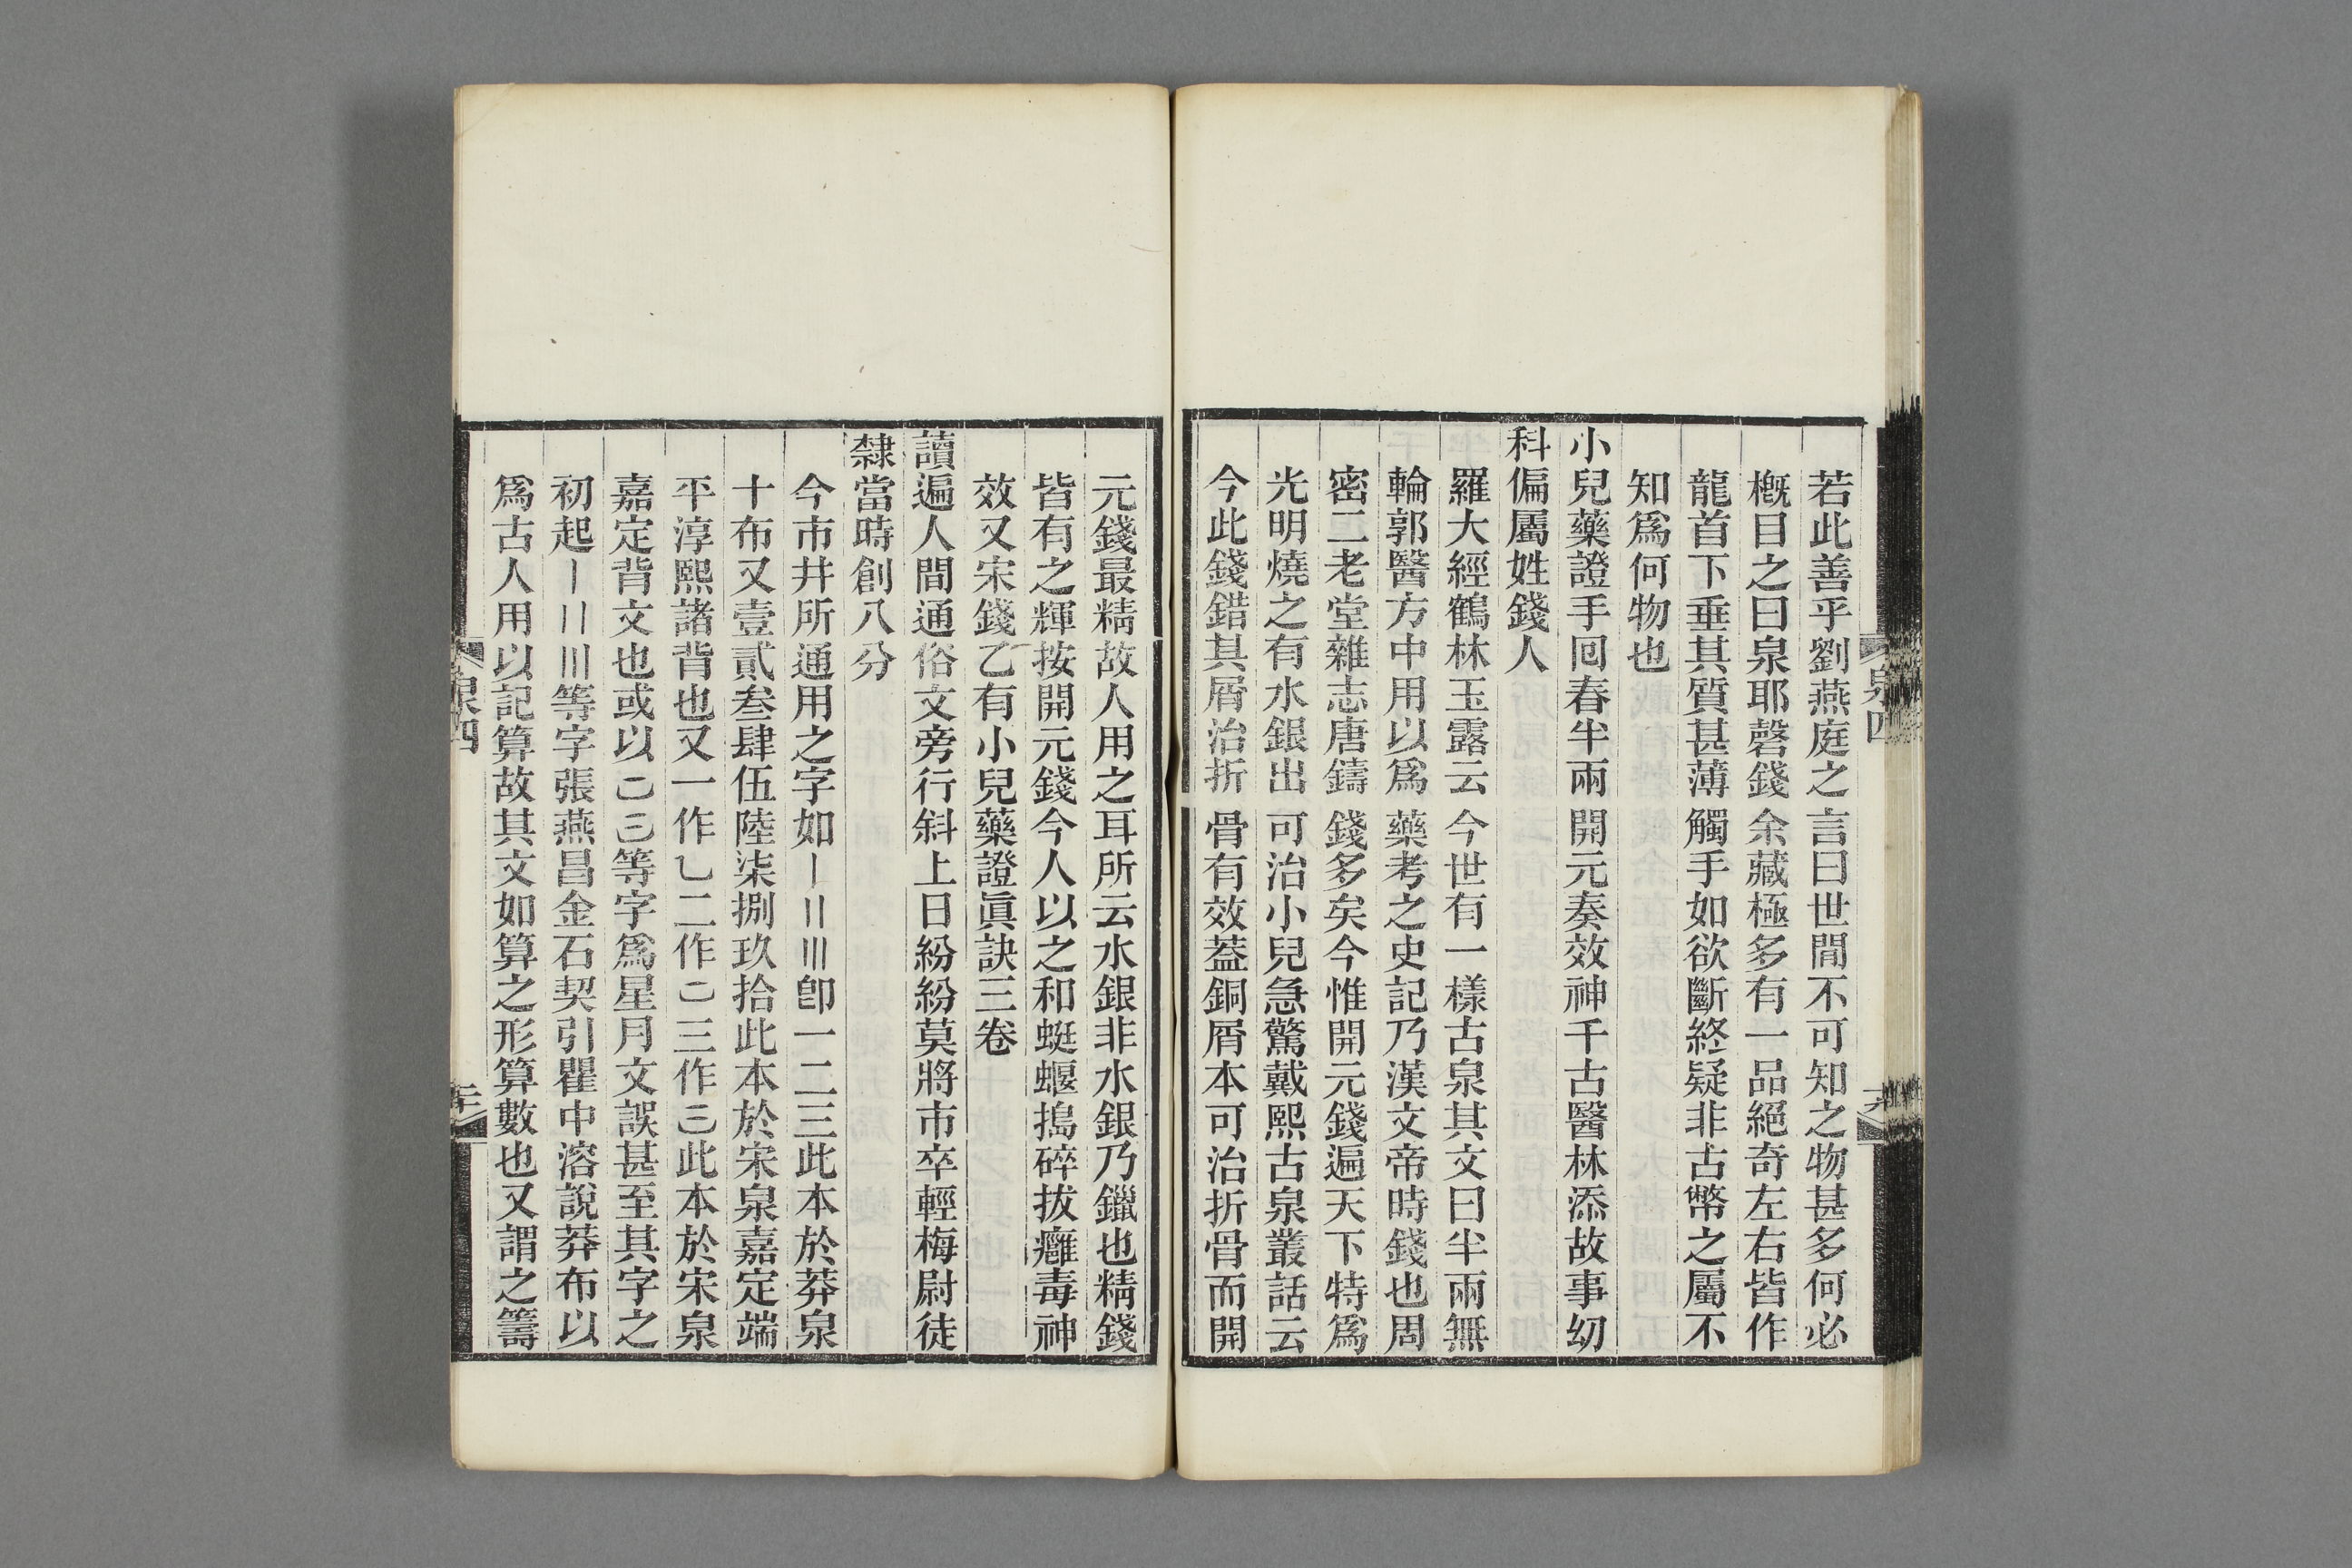 若此善乎劉燕庭之言曰世間不可知之物甚多何必
槪目之曰泉耶磬錢余藏極多有一品絕奇左右皆作
龍首下垂其質甚薄觸手如欲斷終疑非古幣之屬不
知爲何物也
小兒藥證手回春半兩開元奏效神千古醫林添故事幼
科偏屬姓錢人
羅大經鶴林玉露云今世有一樣古泉其文曰半兩無
輪郭醫方中用以爲藥考之史記乃漢文帝時錢也周
密二老堂雜志唐鑄錢多矣今惟開元錢遍天下特爲
光明燒之有水銀出可治小兒急驚戴熙古泉叢話云
今此錢錯其屑治折骨有效蓋銅屑本可治折骨而開
元錢最精故人用之耳所云水銀非水銀乃鑞也精錢
皆有之輝按開元錢今人以之和蜓蝘搗碎拔癰毒神
效又宋錢乙有小兒藥證眞訣三卷
讀遍人間通俗文旁行斜上日紛紛莫將市卒輕梅尉徒
隸當時創八分
今市井所通用之字如〡〢〣卽一二三此本於莽泉
十布又壹貳叁肆伍陸柒捌玖拾此本於宋泉嘉定端
平淳熙諸背也又一作乚二作㔾三作三此本於宋泉
嘉定背文也或以㔾三等字爲星月文誤甚至其字之
初起〡〢〣等字張燕昌金石契引瞿中溶說莽布以
爲古人用以記算故其文如算之形算數也又謂之籌
泉四
泉四